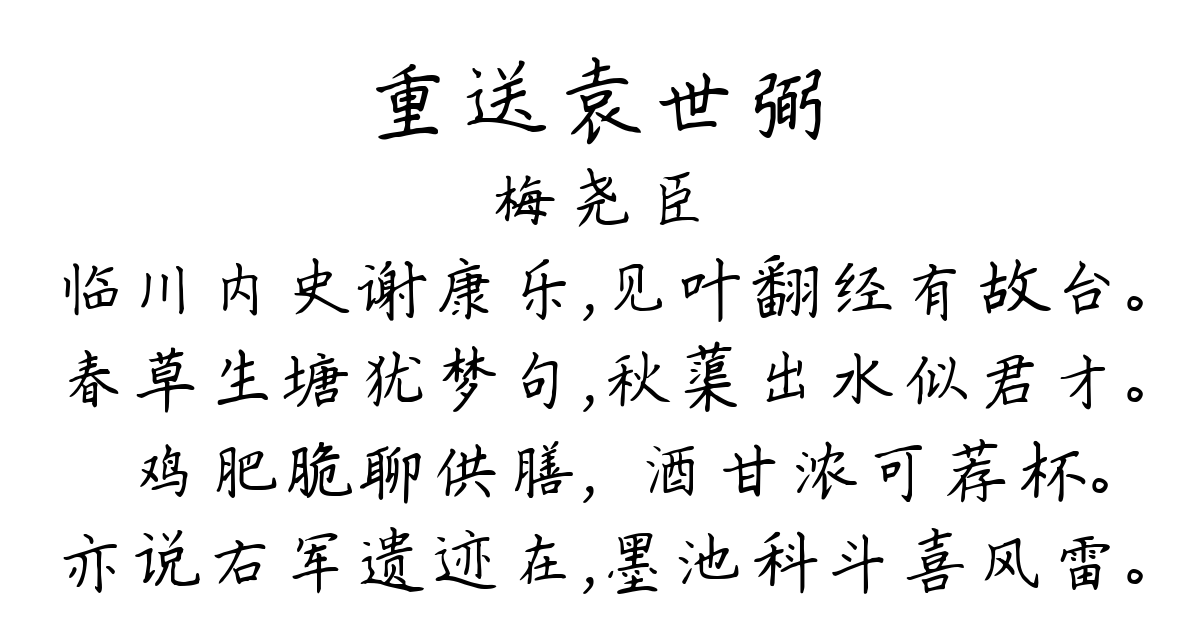 重送袁世弼
梅尧臣
临川内史谢康乐,见叶翻经有故台。
春草生塘犹梦句,秋蕖出水似君才。
鸡肥脆聊供膳,酒甘浓可荐杯。
亦说右军遗迹在,墨池科斗喜风雷。